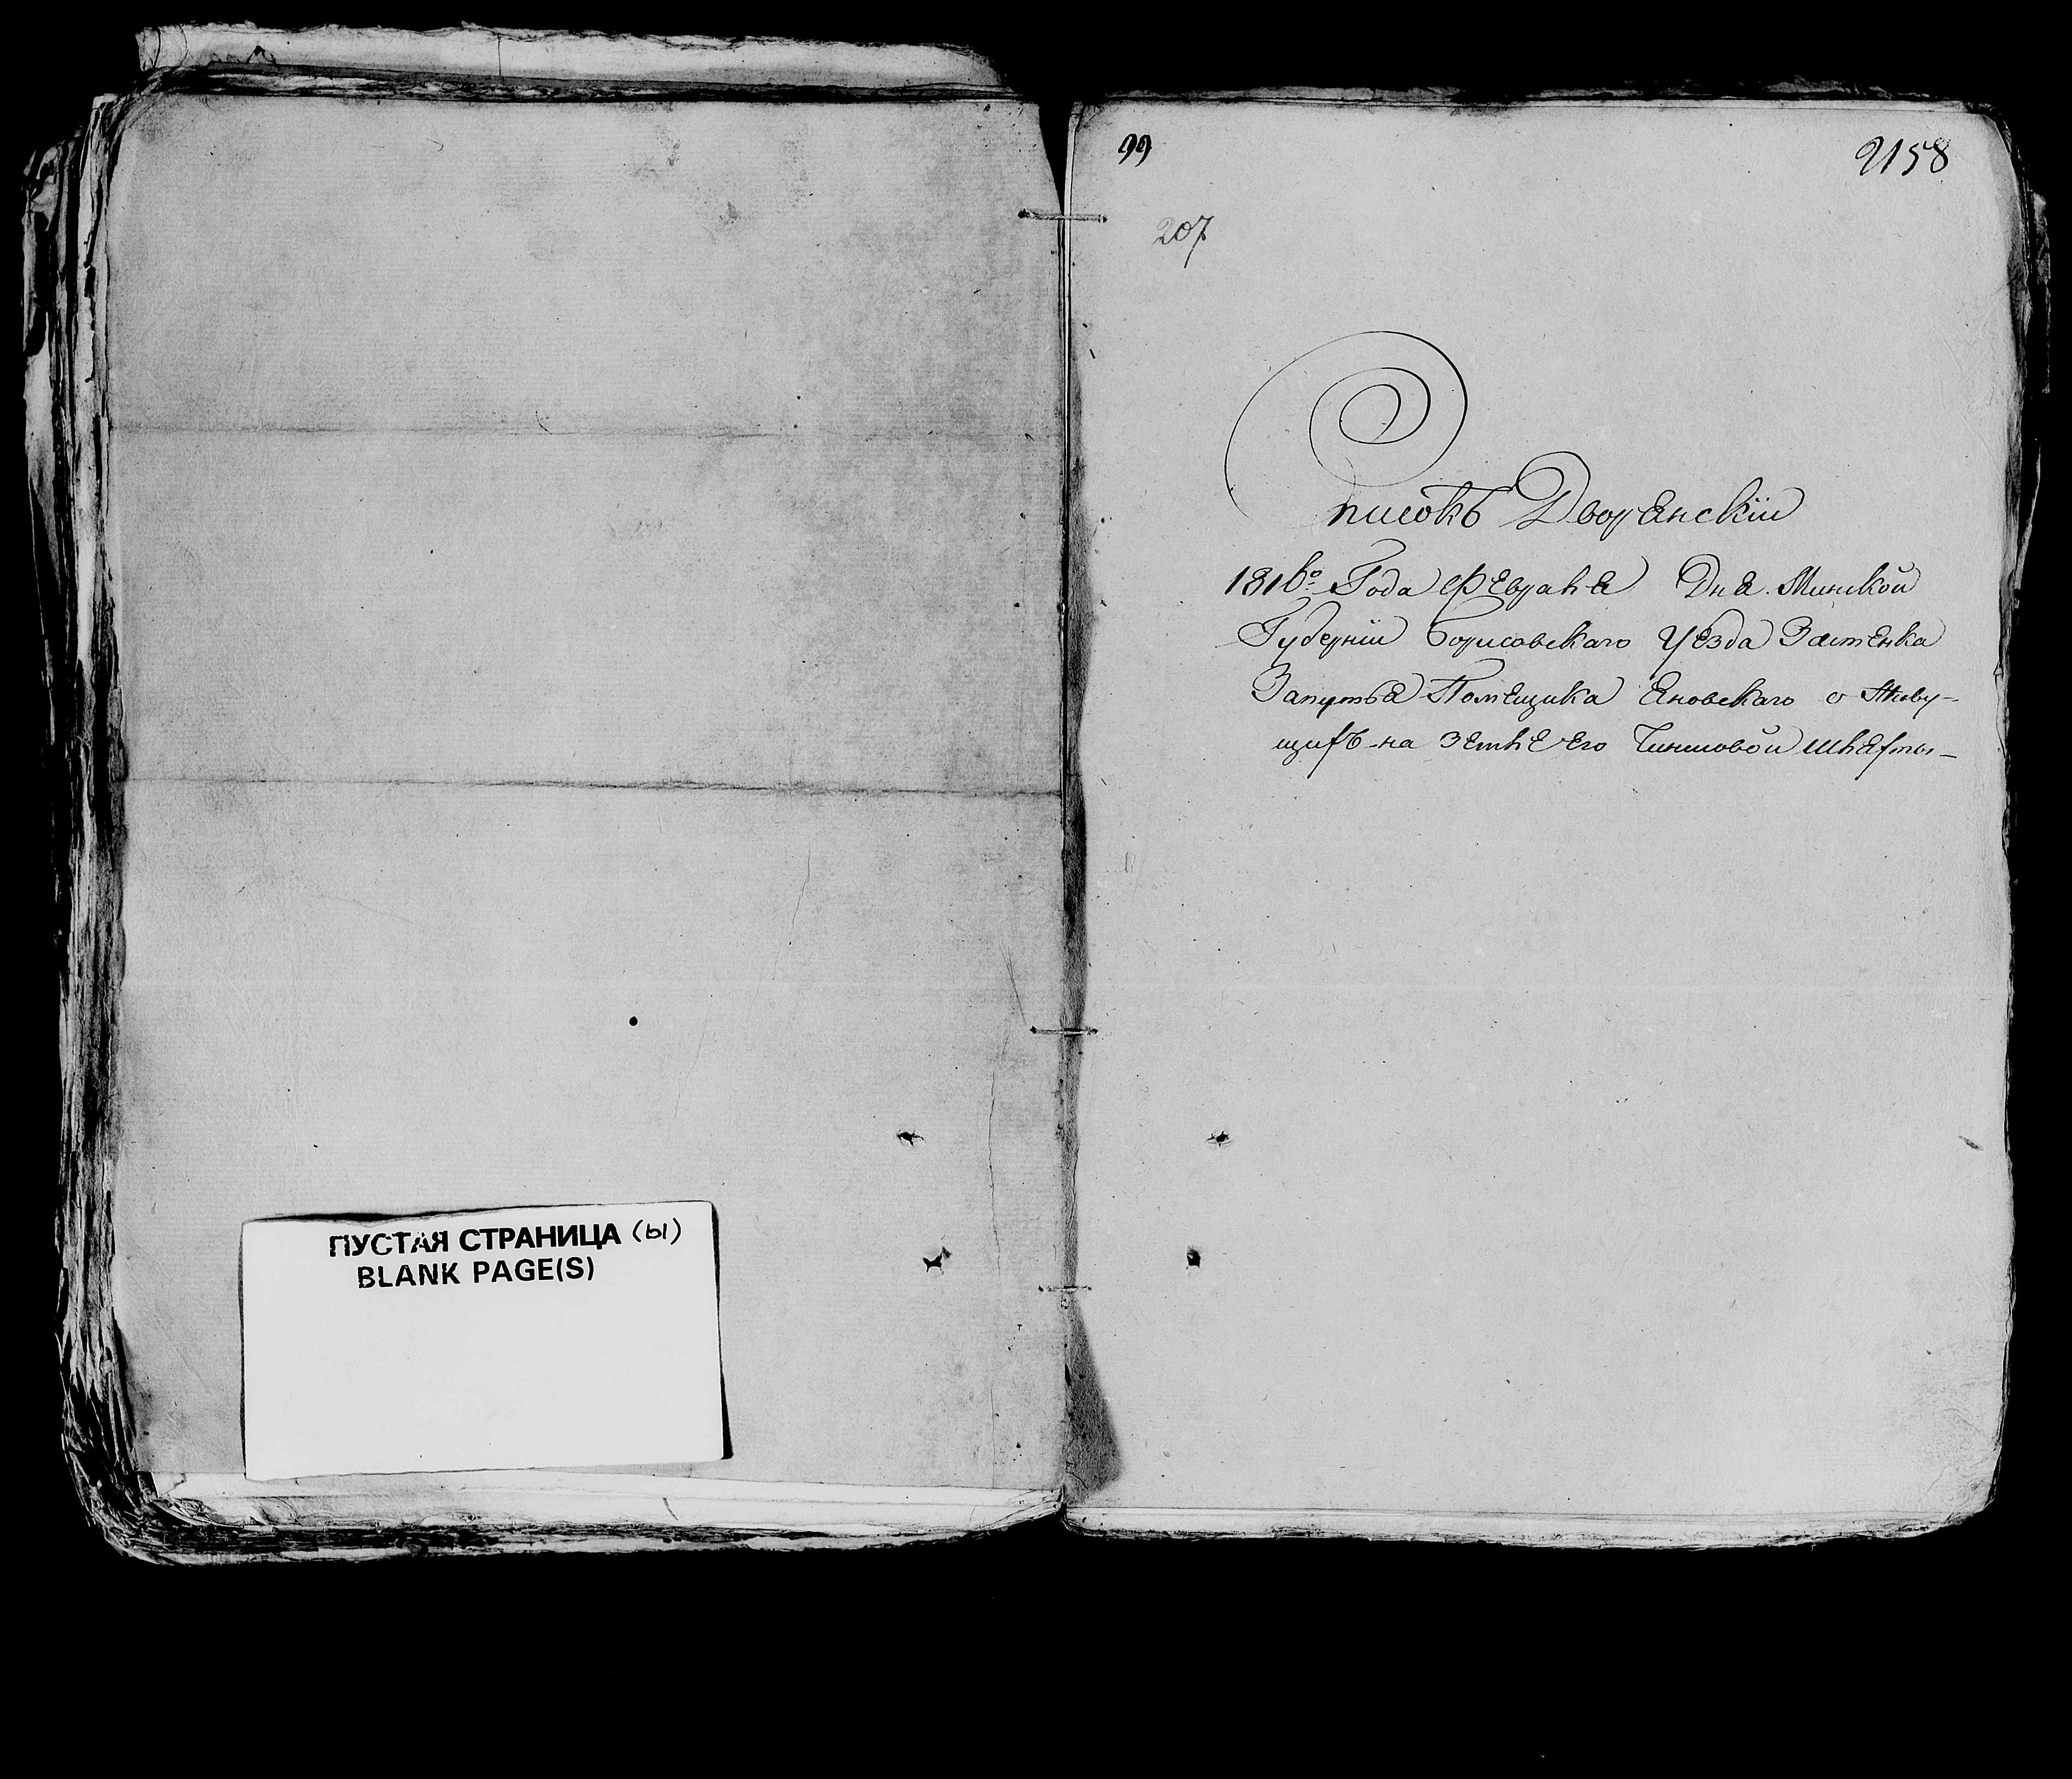 ПУСТАЯ СТРАНИЦА (ы)
BLANK PAGE(S)
99
2158
207
Списокъ Дворянскій
1816го Года Февраля Дня Минской
Губерніи Борисовскаго Уезда Застенка
Запутья Помещика Яновскаго о Живу-
щихъ на земле его Чиншовой шляхты